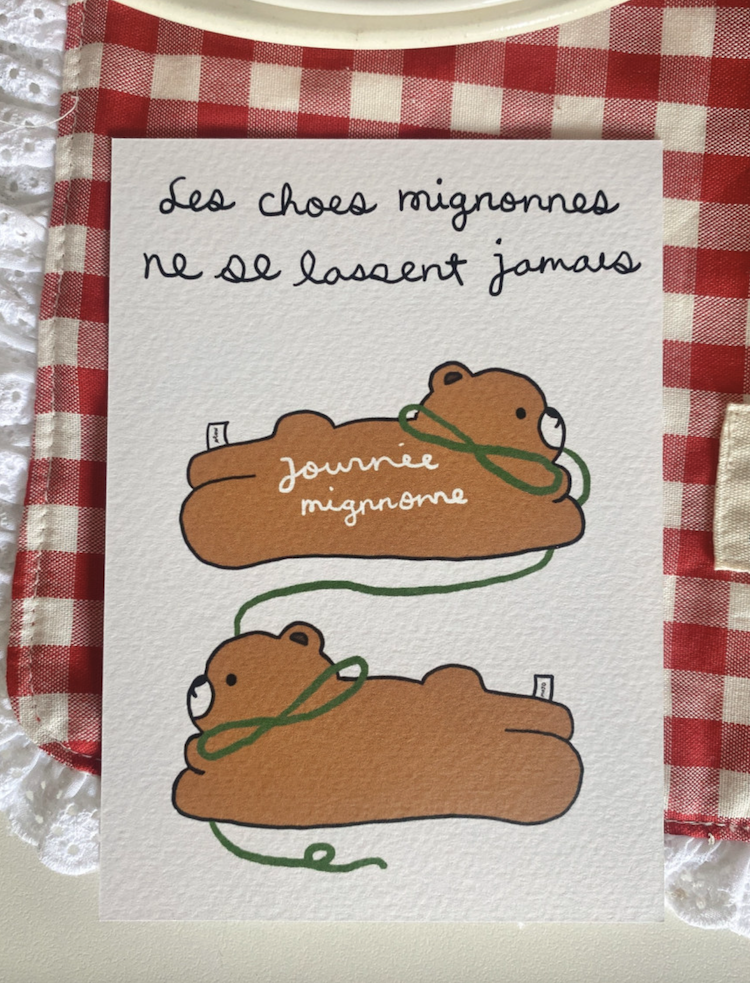 Les choes mignonnes
ne se lassent jamais
Journée
mignnonne